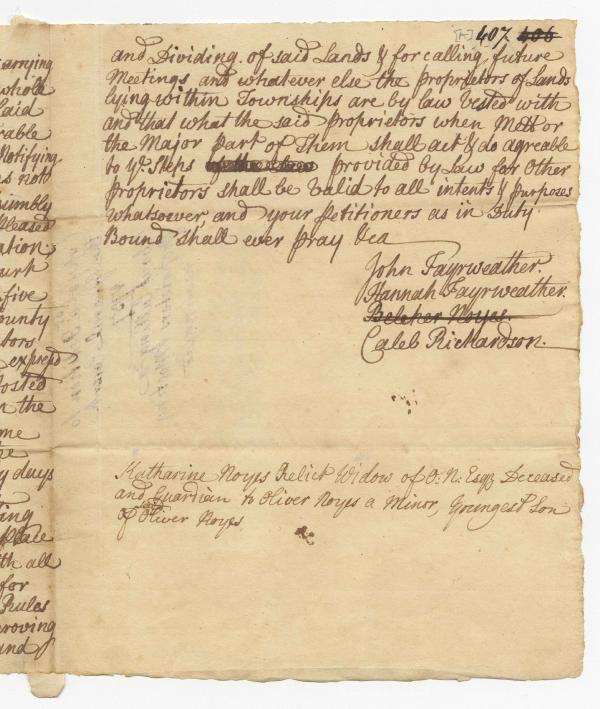 407 406
and Dividing of said Lands & for calling future
Meetings and whatever else the proprietors of Lands
lying within Townships are by law Vested with
and that what the said proprietors when Mett or
the Major part of Them shall act & do agreable
to ye. Steps provided by law for Other
proprietors shall be Valid to all intents & purposes
whatsoever, and your Petitioners as in Duty
Bound shall ever pray &ca
John Fayrweather.
Hannah Fayrweather.
Belcher Noyes.
Caleb Richardson.
Katharine Noyes Relict Widow of O: N: Esqr Deceased
and Guardian to Oliver Noyes a Minor, Youngest Son
of Oliver Noyes
arrying
whole
said
rable
Notifying
as not
humbly
pleased
ation
ourt
five
ounty
tors
expres'd
osted
n the
me
he
y days
ting
place
th all
for
Rules
roving
and